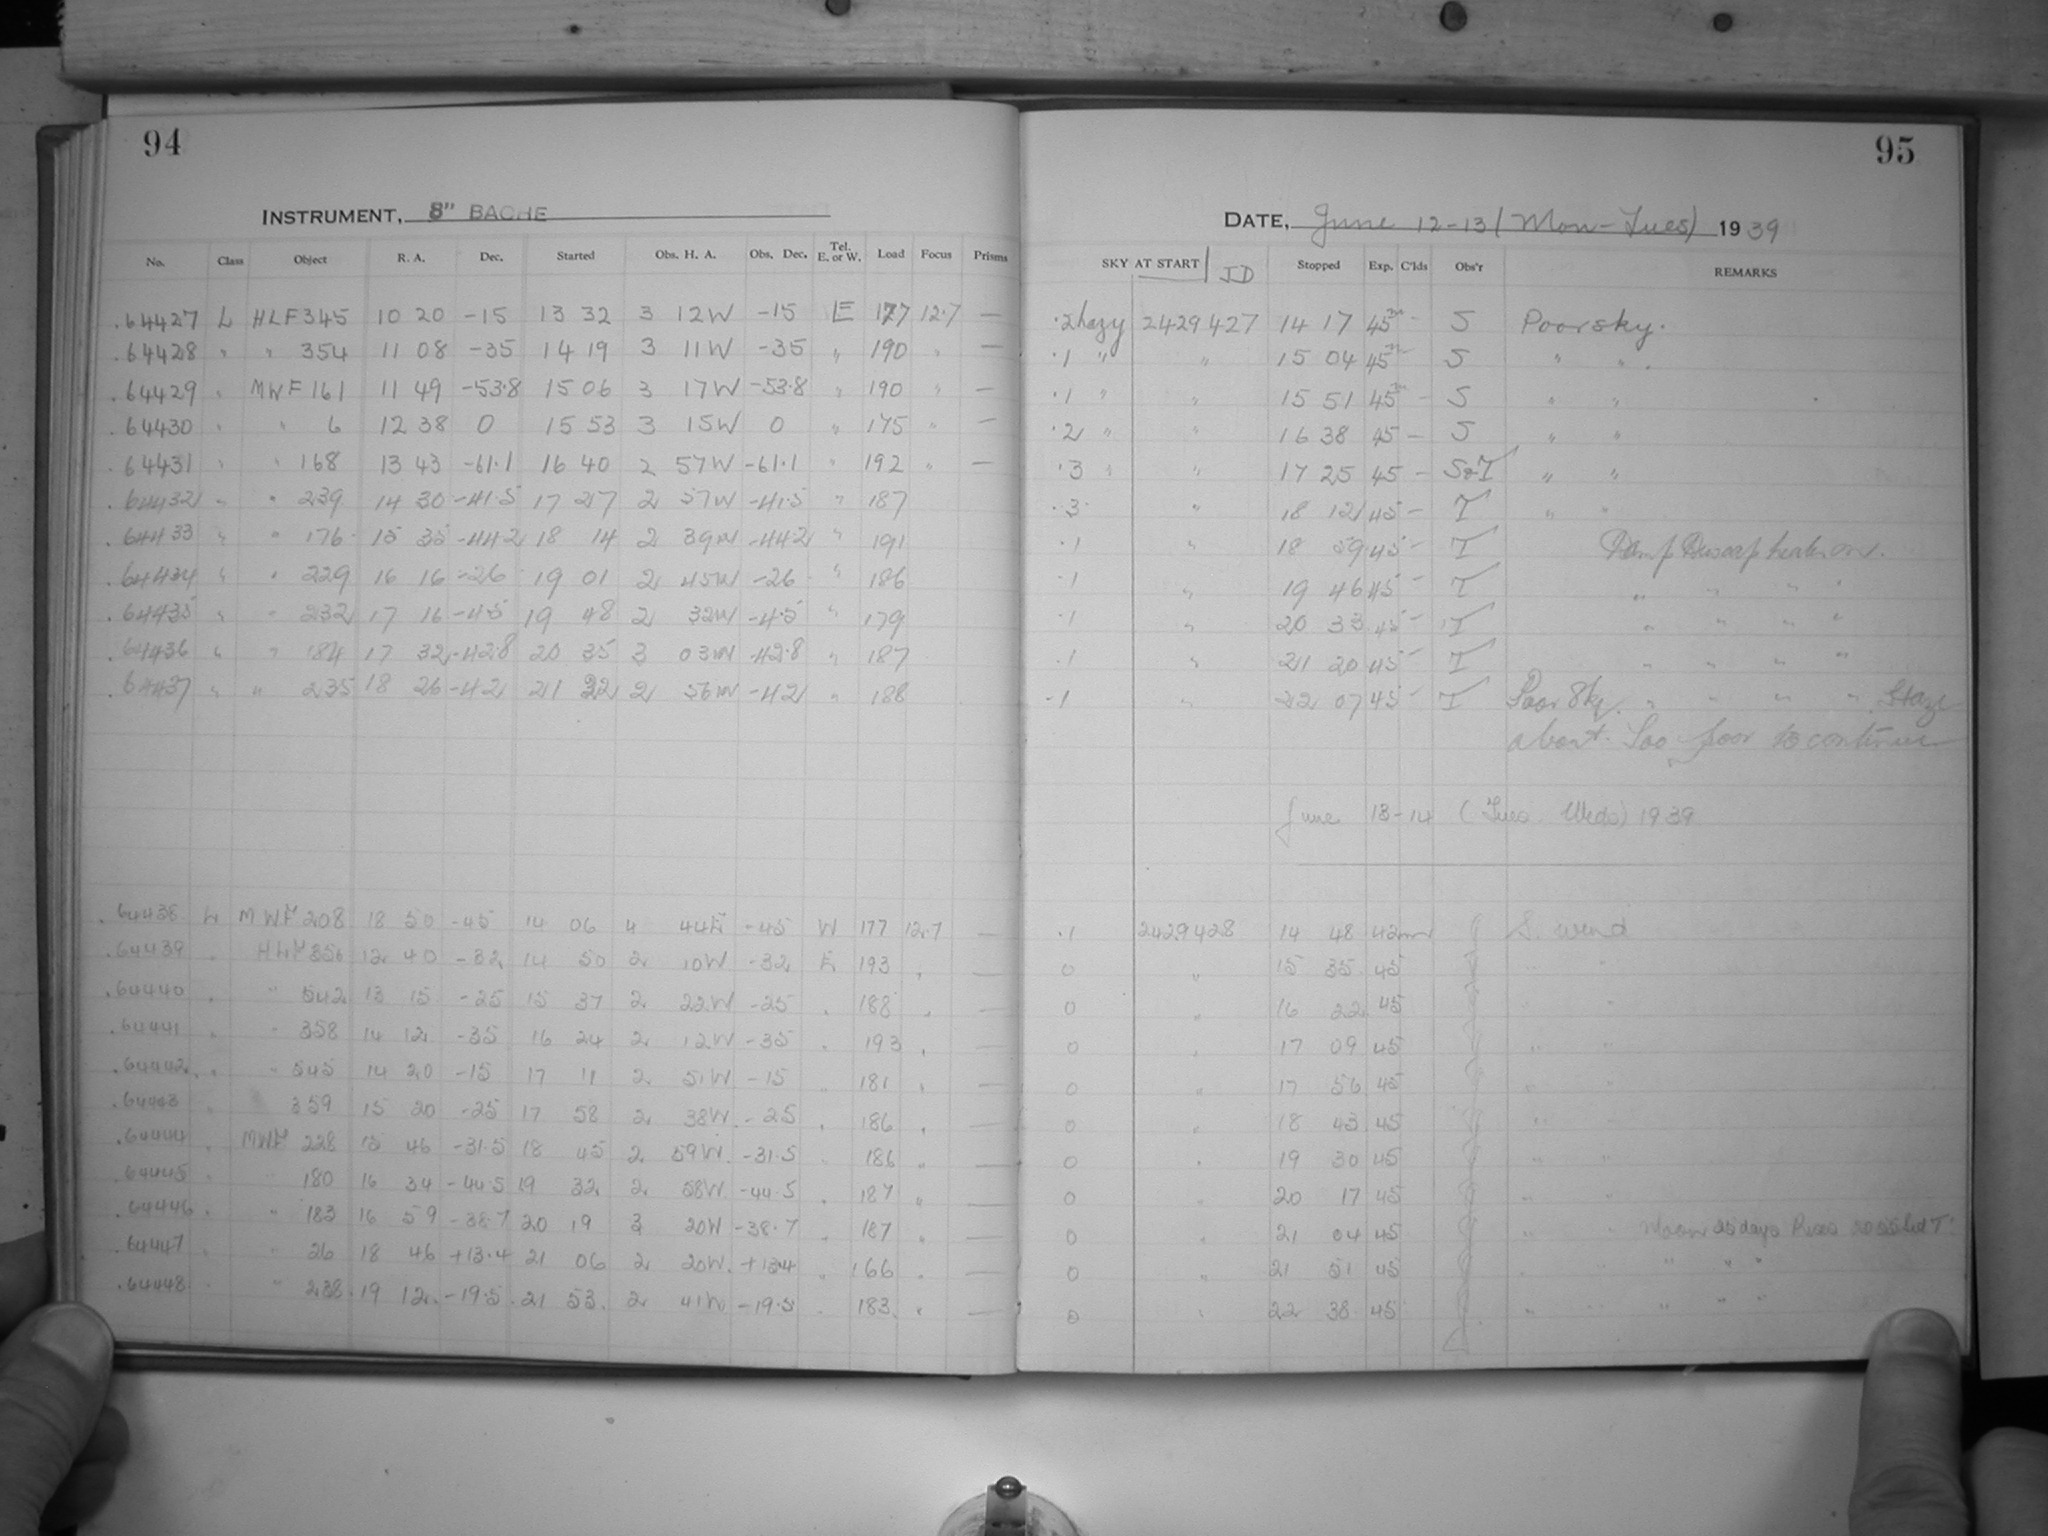 94
INSTRUMENT, 8" BACHE
No. Class Object R. A. Dec. Started Obs. H. A. Obs. Dec. Tel. E. or W. Load Focus Prisms
.64427 L HLF 345 10 20 -15 13 32 3 12W -15 E 177 12.7 —
.64428 " " 354 11 08 -35 14 19 3 11W -35 " 190 " —
.64429 " MWF 161 11 49 -53.8 15 06 3 17W -53.8 " 190 " —
.64430 " " 6 12 38 0 15 53 3 15W 0 " 175 " —
.64431 " " 168 13 43 -61.1 16 40 2 57W -61.1 " 192 " —
.64432 " " 239 14 30 -41.5 17 27 2 57W -41.5 " 187
.64433 " " 176 15 35 -44.2 18 14 2 39W -44.2 " 191
.64434 " " 229 16 16 -26 19 01 2 45W -26 " 186
.64435 " " 232 17 16 -4.5 19 48 2 32W -4.5 " 179
.64436 " " 184 17 32 -42.8 20 35 3 03W -42.8 " 187
.64437 " " 235 18 26 -42 21 22 2 56W -42 " 188
.64438 L MWF 208 18 50 -45 14 06 4 44E -45 W 177 12.7 —
.64439 " HLF 356 12 40 -32 14 50 2 10W -32 E 193 " —
.64440 " " 542 13 15 -25 15 37 2 22W -25 " 188 " —
.64441 " " 358 14 12 -35 16 24 2 12W -35 " 193 " —
.64442 " " 545 14 20 -15 17 11 2 51W -15 " 181 " —
.64443 " 359 15 20 -25 17 58 2 38W -25 " 186 " —
.64444 " MWF 228 15 46 -31.5 18 45 2 59W -31.5 " 186 " —
.64445 " " 180 16 34 -44.5 19 32 2 58W -44.5 " 187 " —
.64446 " " 183 16 59 -38.7 20 19 3 20W -38.7 " 187 " —
.64447 " " 26 18 46 +13.4 21 06 2 20W +13.4 " 166 " —
.64448 " " 238 19 12 -19.5 21 53 2 41W -19.5 " 183 " —
95
DATE, June 12-13 (Mon-Tues) 1939
SKY AT START JD Stopped Exp. C'lds Obs'r REMARKS
.2 hazy 2429427 14 17 45m - S Poor sky.
.1 " " 15 04 45m - S " "
.1 " " 15 51 45m - S " "
.2 " " 16 38 45 - S " "
.3 " " 17 25 45 - S&T " "
.3 " 18 12 45 - T " "
.1 " 18 59 45 - T Damp
.1 " 19 46 45 - T " " " "
.1 " 20 33 45 - T " " " "
.1 " 21 20 45 - T " " " "
.1 " 22 07 45 - T Poor Sky. " " " " Haze
about. Too poor to continue
June 13-14 (Tues. Weds) 1939
.1 2429428 14 48 42m S. wind
0 " 15 35 45 " "
0 " 16 22 45 " "
0 " 17 09 45 " "
0 " 17 56 45 " "
0 " 18 43 45 " "
0 " 19 30 45 " "
0 " 20 17 45 " "
0 " 21 04 45 " " Moon 25 days Rises
0 " 21 51 45 " " " "
0 " 22 38 45 " " " " "